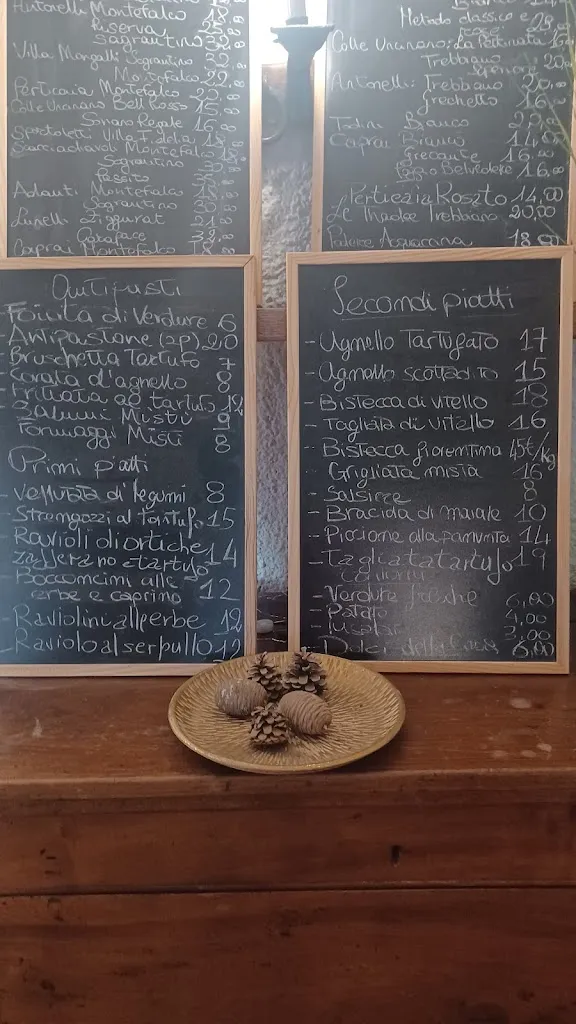 Antonelli Montefalco
Riserva
Sagrantino 32,00
Villa Mongalli Sagrantino
Montefalco 22,00
Perticaia Montefalco 22,00
Colle Uncinano Bell Rosso 15,00
Sonaro Regale 16,00
Spoletoducale Villa Fidelia 18,00
Montefalco
Sagrantino
Passito
Adanti Montefalco 18,00
Sagrantino
Lunelli Ziggurat
Carapace 32,00
Caprai Montefalco 18,00
Metodo classico e
Colle Uncinano: La Pettinata
Trebbiano
Antonelli: Trebbiano 20,00
Grechetto 16,00
Todini Bianco
Caprai Bianco 14,00
Grecante 16,00
Poggio Belvedere 16,00
Perticaia Rosato 14,00
Le Thadee Trebbiano 20,00
Podere Acquacana 18,00
Antipasti
Foicità di Verdure 6
Antipastone (2p) 20
Bruschetta Tartufo 7
Corata d'agnello 8
Frittata al tartufo 12
Salumi Misti 9
Formaggi Misti 8
Primi piatti
- Vellutata di legumi 8
- Strengozzi al Tartufo 15
- Ravioli di ortiche
zafferano e tartufo 14
- Bocconcini alle
erbe e caprino 12
- Raviolini all'erbe 12
- Raviolo al serpullo 12
Secondi piatti
- Agnello Tartufato 17
- Agnello scottadito 15
- Bistecca di vitello 18
- Tagliata di vitello 16
- Bistecca fiorentina 45€/kg
- Grigliata mista 16
- Salsicce 8
- Braciola di maiale 10
- Piccione alla panunta 14
- Tagliata tartufo 19
- Verdure fresche 6,00
- Patate 4,00
- Insalata 3,00
- Dolci della casa 6,00